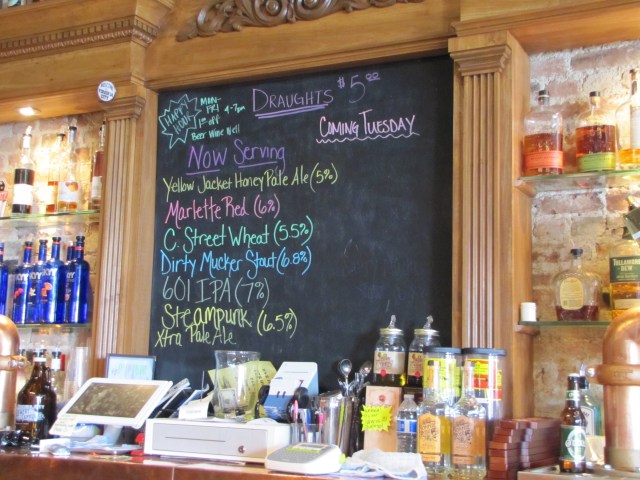 HAPPY HOUR!
MON-
FRI
4-7pm
1⁰⁰ off
Beer Wine Well
DRAUGHTS $5.00
COMING TUESDAY
NOW SERVING
Yellow Jacket Honey Pale Ale (5%)
Marlette Red (6%)
C. Street Wheat (5.5%)
Dirty Mucker Stout (6.8%)
601 IPA (7%)
Steampunk (6.5%)
Xtra Pale Ale
SKYY
TULLAMORE